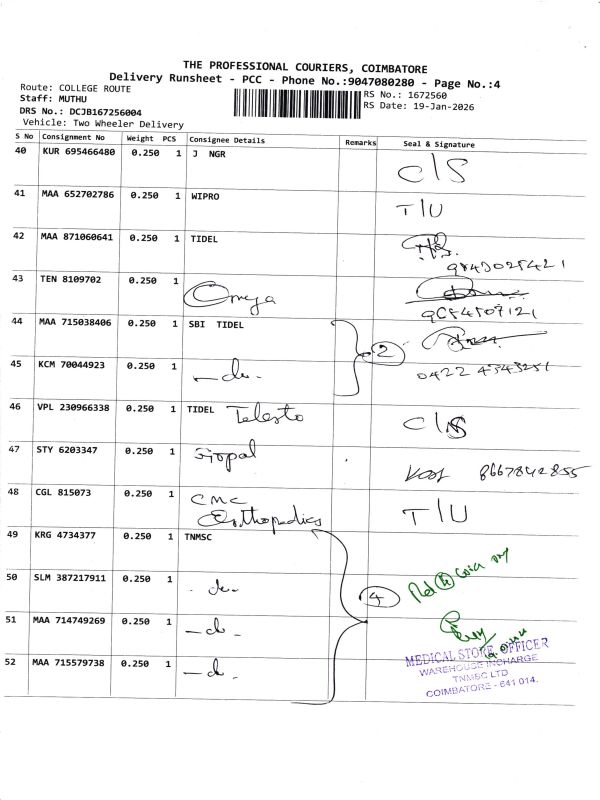 THE PROFESSIONAL COURIERS, COIMBATORE
Delivery Runsheet - PCC - Phone No.:9047080280 - Page No.:4
Route: COLLEGE ROUTE
Staff: MUTHU
DRS No.: DCJB167256004
Vehicle: Two Wheeler Delivery
RS No.: 1672560
RS Date: 19-Jan-2026
S No Consignment No Weight PCS Consignee Details Remarks Seal & Signature
40 KUR 695466480 0.250 1 J NGR C/S
41 MAA 652702786 0.250 1 WIPRO T/U
42 MAA 871060641 0.250 1 TIDEL
9843025421
43 TEN 8109702 0.250 1 Omega
44 MAA 715038406 0.250 1 SBI TIDEL 2
45 KCM 70044923 0.250 1 -do-
46 VPL 230966338 0.250 1 TIDEL Telesto C/S
47 STY 6203347 0.250 1 8667842855
48 CGL 815073 0.250 1 CMC Orthopedics T/U
49 KRG 4734377 0.250 1 TNMSC
50 SLM 387217911 0.250 1 -do- 4
51 MAA 714749269 0.250 1 -do-
52 MAA 715579738 0.250 1 -do-
MEDICAL STORE OFFICER
WAREHOUSE INCHARGE
TNMSC LTD
COIMBATORE - 641 014.